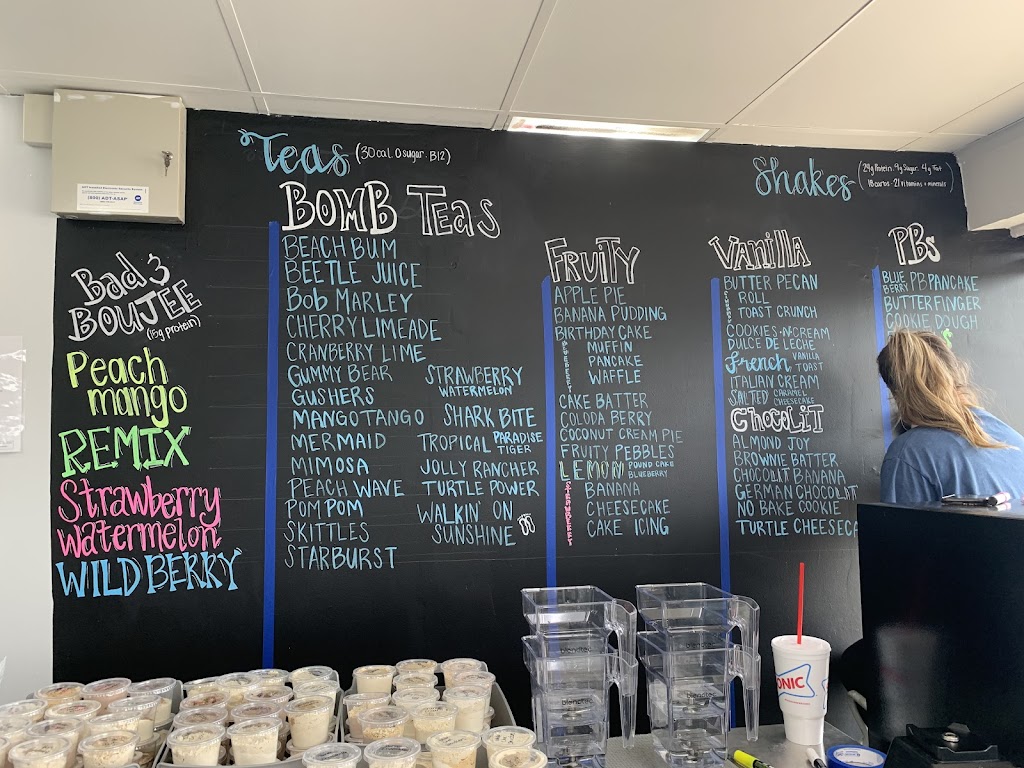 Teas (30 cal. 0 sugar. B12)
Shakes (24g Protein. 9g Sugar. 4g Fat
18 carbs. 21 vitamins + minerals)
(800) ADT-ASAP
Bad &
BOUJEE
(15g protein)
Peach
mango
REMIX
Strawberry
Watermelon
WILD BERRY
BOMB TEAS
BEACH BUM
BEETLE JUICE
BOB MARLEY
CHERRY LIMEADE
CRANBERRY LIME
GUMMY BEAR
GUSHERS
MANGO TANGO
MERMAID
MIMOSA
PEACH WAVE
POM POM
SKITTLES
STARBURST
STRAWBERRY
WATERMELON
SHARK BITE
TROPICAL PARADISE
TIGER
JOLLY RANCHER
TURTLE POWER
WALKIN' ON
SUNSHINE
FRUITY
APPLE PIE
BANANA PUDDING
BIRTHDAY CAKE
BLUEBERRY
MUFFIN
PANCAKE
WAFFLE
CAKE BATTER
COLODA BERRY
COCONUT CREAM PIE
FRUITY PEBBLES
LEMON POUND CAKE
BLUEBERRY
STRAWBERRY
BANANA
CHEESECAKE
CAKE ICING
VANILLA
BUTTER PECAN
ROLL
TOAST CRUNCH
COOKIES-N-CREAM
DULCE DE LECHE
French VANILLA
TOAST
ITALIAN CREAM
SALTED CARAMEL
CHEESECAKE
CHOCOLIT
ALMOND JOY
BROWNIE BATTER
CHOCOLIT BANANA
GERMAN CHOCOLIT
NO BAKE COOKIE
TURTLE CHEESECA
PBs
BLUE BERRY PB PANCAKE
BUTTERFINGER
COOKIE DOUGH
blendtec
blendtec
SONIC